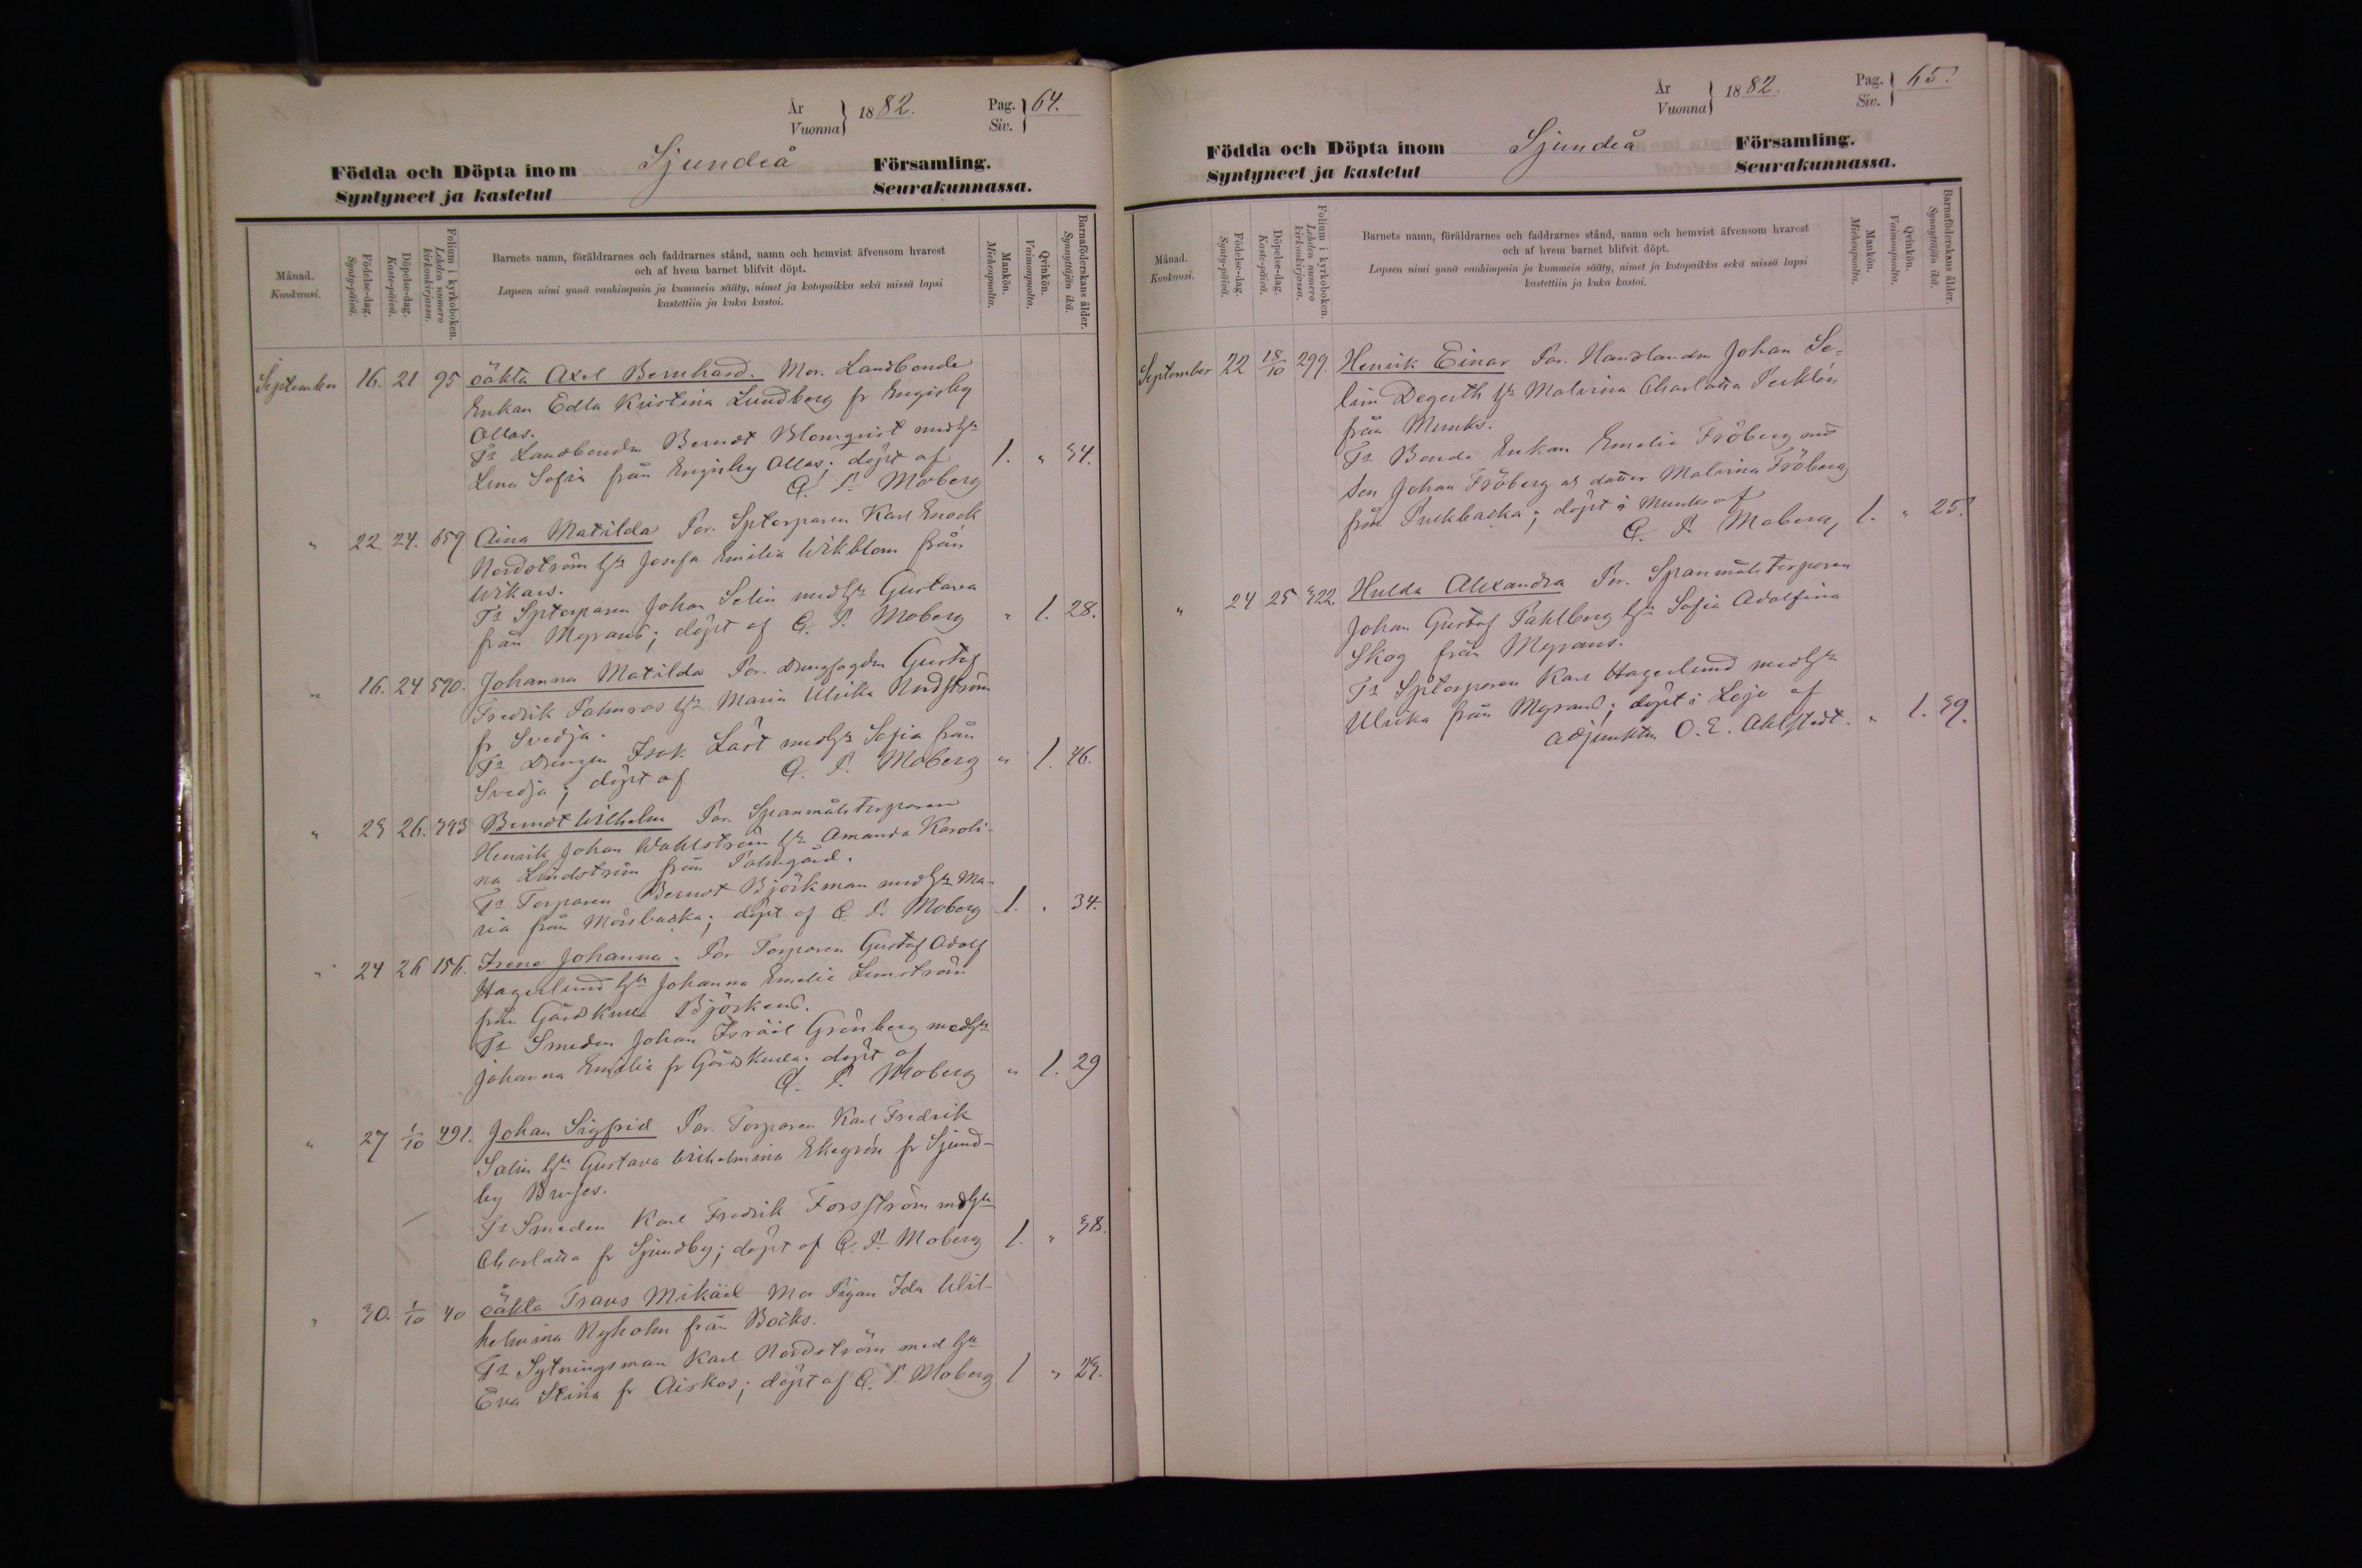 År
Vuonna
1882.
Pag.
Siv.
64.
Födda och Döpta inom Sjundeå Församling.
Syntyneet ja kastetut Seurakunnassa.
Månad.
Kuukausi.
Födelse-dag.
Synty-päivä.
Döpelse-dag.
Kaste-päivä.
Folium i kyrkoboken.
Lehden numero kirkonkirjassa.
Barnets namn, föräldrarnes och faddrarnes stånd, namn och hemvist äfvensom hvarest
och af hvem barnet blifvit döpt.
Lapsen nimi ynnä vanhimpain ja kummein sääty, nimet ja kotopaikka sekä missä lapsi
kastettiin ja kuka kastoi.
Mankön.
Miehenpuolta.
Qvinkön.
Vaimonpuolta.
Barnaföderskans ålder.
Synnyttäjän ikä.
September 16. 21 95 oäkta Axel Bernhard. Mor. Landbonde
Enkan Edla Kristina Lundberg fr Engisby
Ollas.
Fr Landbonden Berndt Blomqvist med hu
Lena Sofia från Engisby Ollas; döpt af
G. P. Moberg 1. " 34.
" 22. 24. 659. Aina Matilda För. Sptorparen Karl Enock
Nordström hu Josefa Emilia Wikblom från
Wikars.
Fr Sptorparen Johan Selin med hu Gustava
från Myrans; döpt af G. P. Moberg " 1. 28.
" 16. 24 590. Johanna Matilda För. Gustaf
Fredrik Palmros hu Maria Ulrika Lindström
fr Svedja.
Fr Drengen Isak Läst med hu Sofia från
Svedja; döpt af G. P. Moberg " 1. 46.
" 23 26. 393 Berndt Wilhelm För. Spanmålstorparen
Henrik Johan Wahlström hu Amanda Karoli-
na Lindström från Palmgård.
Fr Torparen Berndt Björkman med hu Ma-
ria från Mörsbacka; döpt af G. P. Moberg 1. " 34.
" 24 26 156. Irene Johanna. För Torparen Gustaf Adolf
Hagerlund hu Johanna Emelie Lemström
från Gårdskulla Björkens.
Fr Smeden Johan Israël Grönberg med hu
Johanna Emilia fr Gårdskulla. döpt af
G. P. Moberg " 1. 29
" 27 1/10 491. Johan Sigfrid För. Torparen Karl Fredrik
Salin hu Gustava Wilhelmina Ekegrén fr Sjund-
by Brusas.
Fr Smeden Karl Fredrik Forsström med hu
Charlotta fr Sjundby; döpt af G. P. Moberg 1. " 38.
" 30. 1/10 40 oäkta Frans Mikäel Mor Pigan Ida Wil-
helmina Nyholm från Böcks.
Fr Sytningsman Karl Nordström med hu
Eva Stina fr Aiskos; döpt af G. P. Moberg 1 " 23.
År
Vuonna
1882.
Pag.
Siv.
65.
Födda och Döpta inom Sjundeå Församling.
Syntyneet ja kastetut Seurakunnassa.
Månad.
Kuukausi.
Födelse-dag.
Synty-päivä.
Döpelse-dag.
Kaste-päivä.
Folium i kyrkoboken.
Lehden numero kirkonkirjassa.
Barnets namn, föräldrarnes och faddrarnes stånd, namn och hemvist äfvensom hvarest
och af hvem barnet blifvit döpt.
Lapsen nimi ynnä vanhimpain ja kummein sääty, nimet ja kotopaikka sekä missä lapsi
kastettiin ja kuka kastoi.
Mankön.
Miehenpuolta.
Qvinkön.
Vaimonpuolta.
Barnaföderskans ålder.
Synnyttäjän ikä.
September 22 18/10 299. Henrik Einar För. Handlanden Johan Se-
lim Degerth hu Malvina Charlotta Perklén
från Munks.
Fr Bonde Enkan Emelie Fröberg med
Son Johan Fröberg och dotter Malvina Fröberg
från Purkbacka; döpt å Munks af
G. P. Moberg 1. " 25.
" 24 25 322. Hulda Alexandra För. Spanmålstorparen
Johan Gustaf Pahlberg hu Sofia Adolfina
Skog från Myrans.
Fr Sptorparen Karl Hagerlund med hu
Ulrika från Myrans; döpt i Lojo af
Adjunkten O. E. Ahlstedt. " 1. 39.